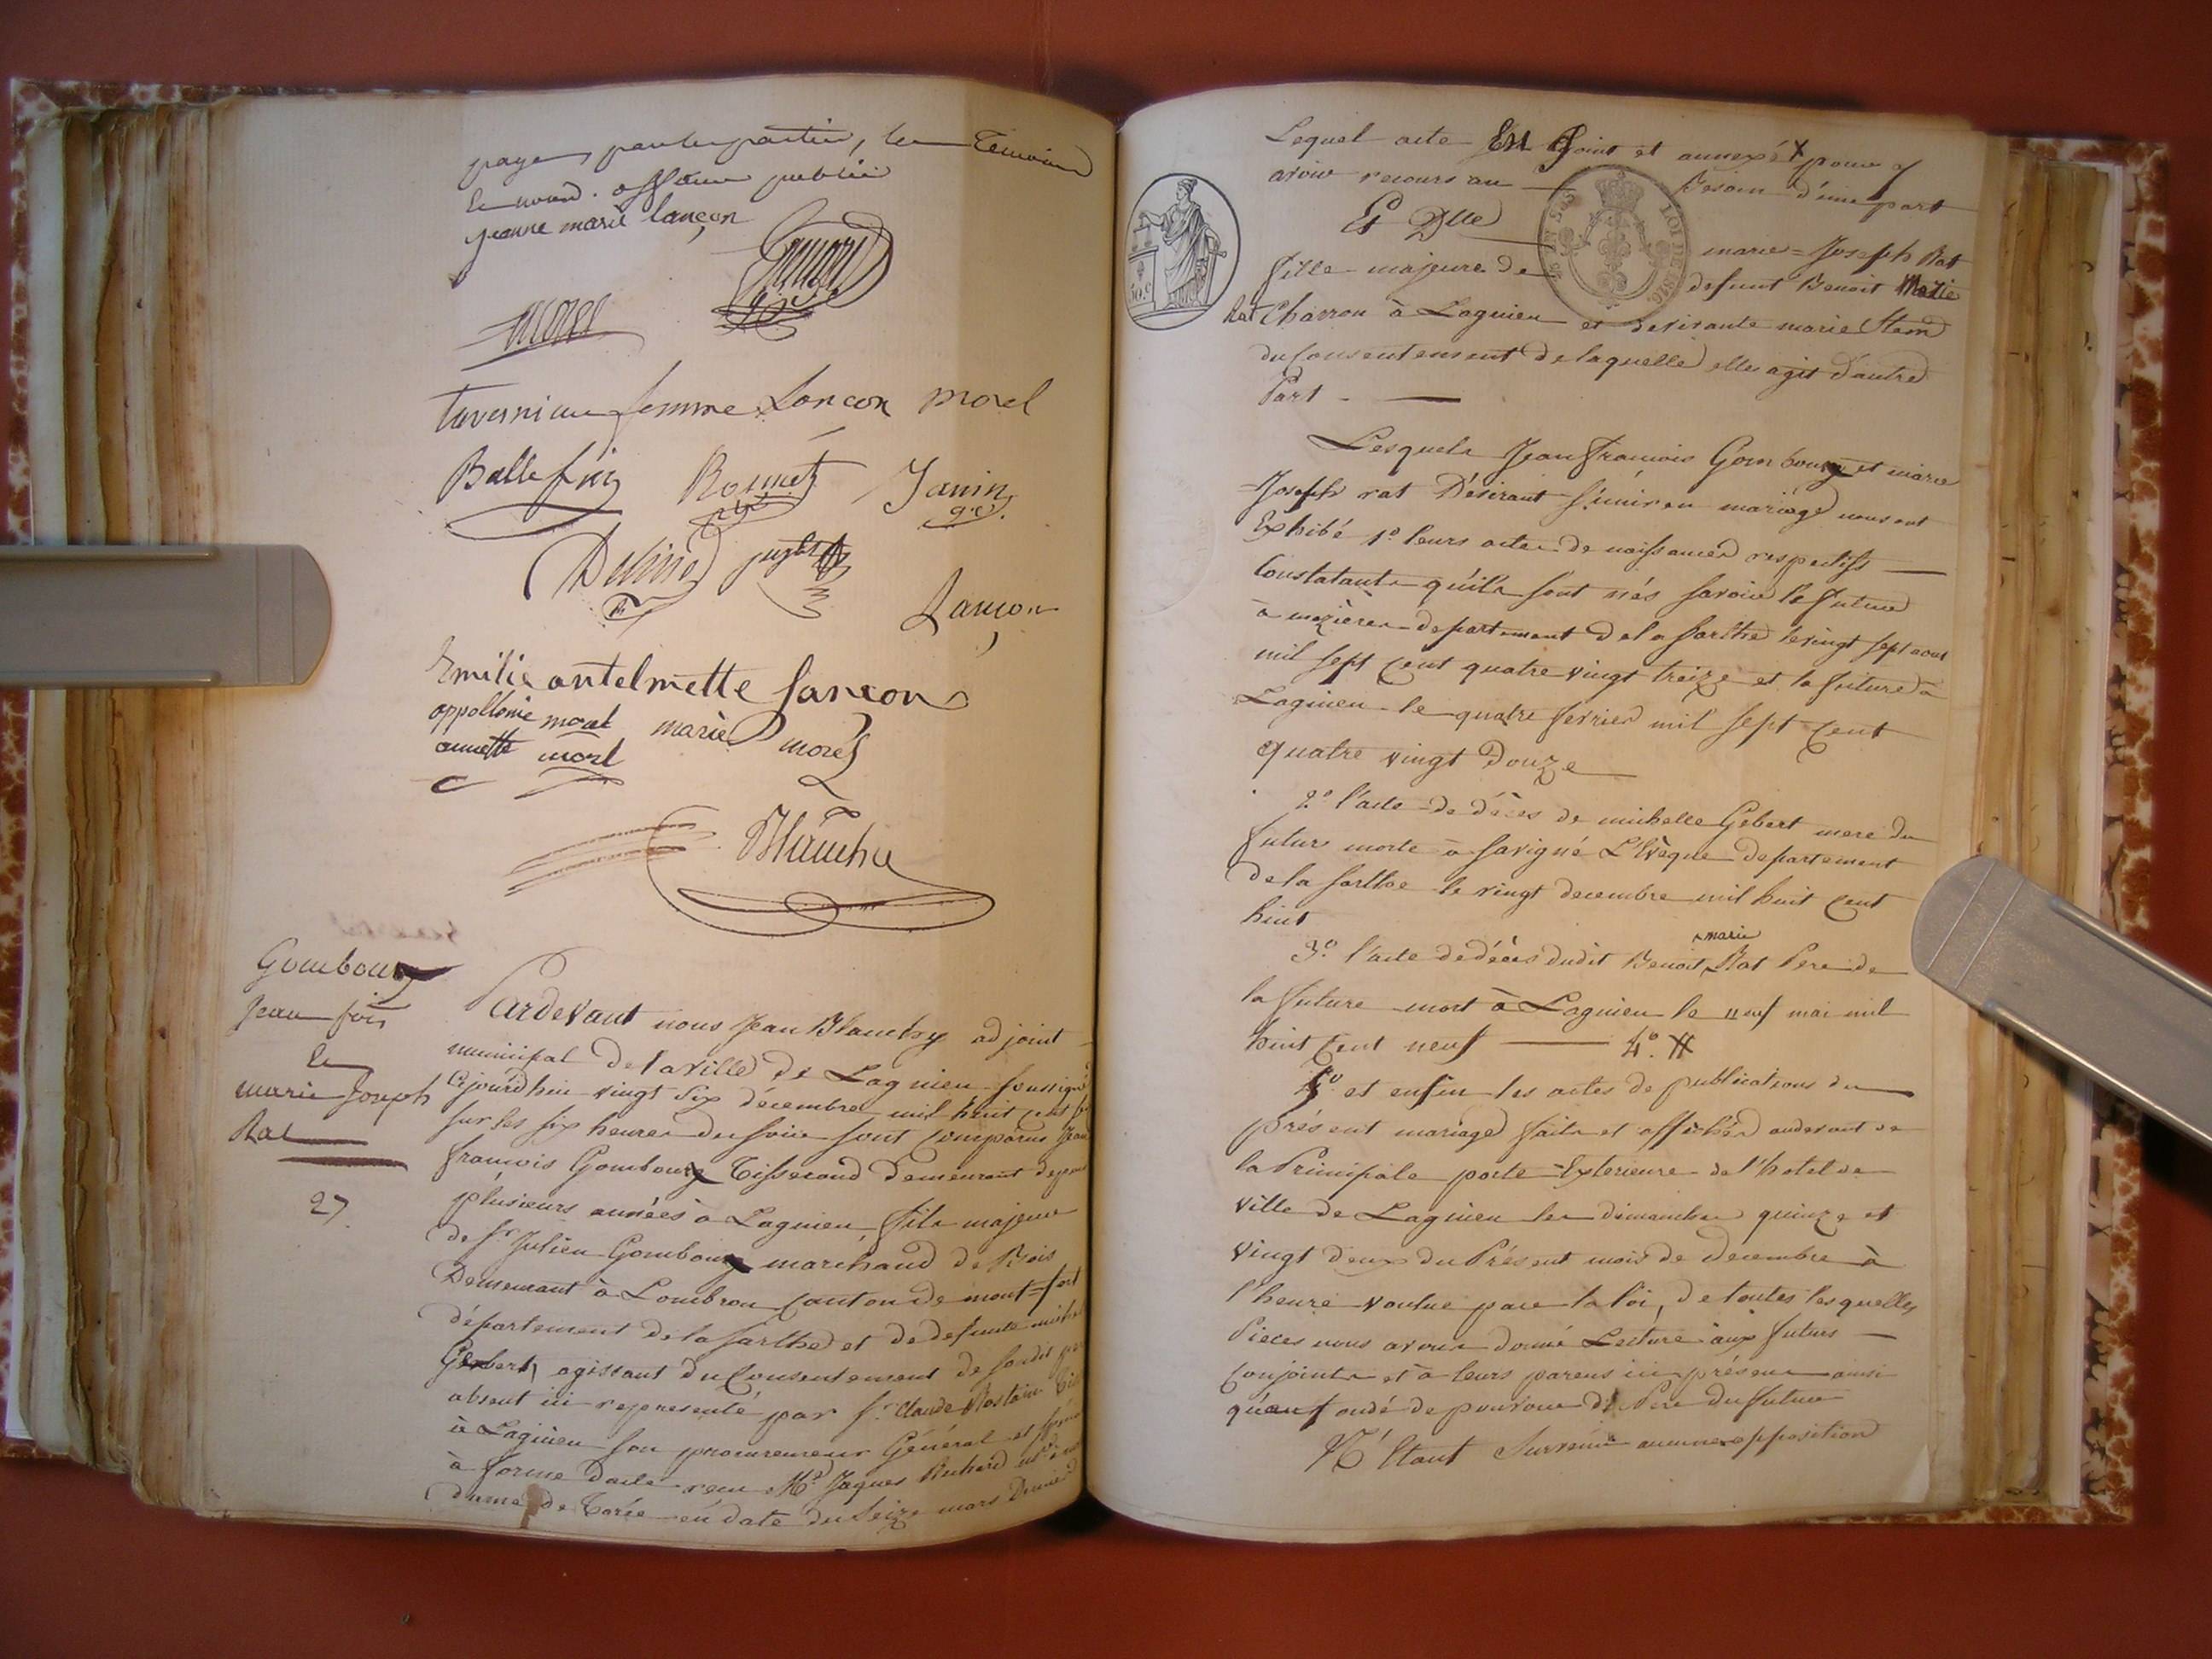 pages par les parties, les Temoins
Jeanne marie lançon
morel
femme Lançon morel
Ballefin Bonnet Janin
Lançon
Emilie antelmette Lançon
appollonie morel marie morel
annette morel
Blanchy
Gombourg
Jean fois
Et
marie Joseph
Rat
27.
Pardevant nous Jean Blanchy adjoint
municipal de la ville de Lagnieu soussigné
Cejourdhui vingt Six décembre mil huit cent
sur les six heures du soir sont comparus Jean
françois Gombourg Tisserand demeurant depuis
plusieurs années à Lagnieu, fils majeur
de Sr Julien Gombourg marchand de Bois
Demeurant à Lombron canton de mont=fort
département de la sarthe et de defunte michelle
Gebert, agissant du Consentement de sondit père
absent ici representé par Sr Claude Rostain
à Lagnieu son procureur Général et
à forme d'acte recu Me Jaques Richard
de Torée en date du seize mars Dernier
Lequel acte Est Joint et annexé pour y
avoir recours au Besoin d'une part
LOI DE 1816.
50.c
Et Dlle marie=Joseph Rat
fille majeure de defunt Benoit Marie
Rat Charron à Lagnieu et devivante marie
du Consentement de laquelle elle agit d'autre
Part.
Lesquels Jean françois Gombourg et marie
=Joseph rat Désirant s'unir en mariage nous ont
Exhibé 1º leurs actes de naissances respectifs
Constatants qu'ils sont nés savoir le futur
à mezières departement de la sarthe le vingt sept aout
mil sept Cent quatre vingt treize et la future à
Lagnieu le quatre fevrier mil sept Cent
quatre vingt Douze
2º l'acte de décès de michelle Gebert mere du
futur morte à savigné L'Evêque departement
de la sarthe le vingt decembre mil huit Cent
huit
3º l'acte de décès dudit Benoit marie Rat Pere de
la future mort à Lagnieu le neuf mai mil
huit Cent neuf 4º. #
5º et enfin les actes de publications du
présent mariage faits et affichés audevant de
la Principale porte Exterieure de l'hotel de
ville de Lagnieu les dimanches quinze et
vingt deux du Présent mois de Decembre à
l'heure voulue par la loi, de toutes lesquelles
Pieces nous avons donné Lecture aux futurs
Conjoints et à leurs parens ici présens ainsi
qu'au fondé de pouvoir du Père du futur
N'Etant Survenu aucune opposition